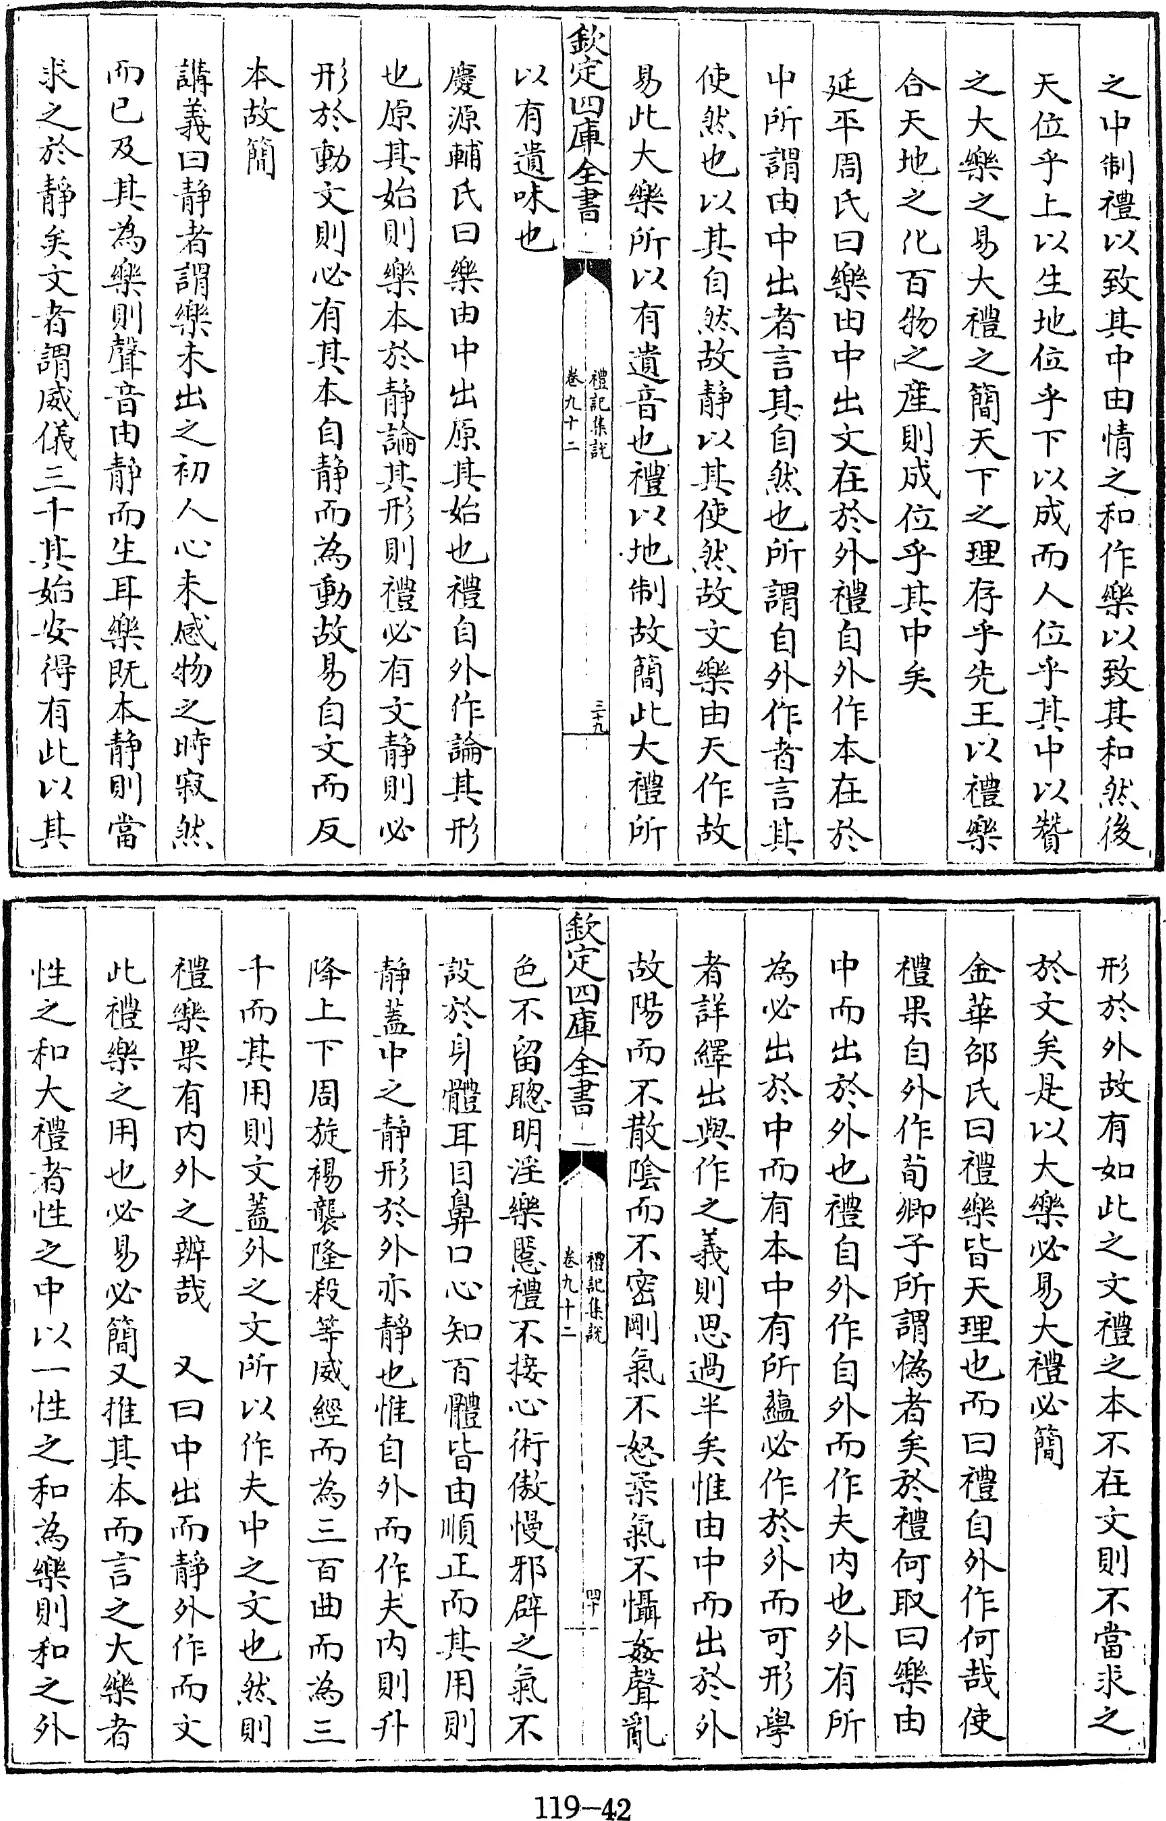 之中制禮以致其中由情之和作樂以致其和然後
天位乎上以生地位乎下以成而人位乎其中以贊
之大樂之易大禮之簡天下之理存乎先王以禮樂
合天地之化百物之産則成位乎其中矣
延平周氏曰樂由中出文在於外禮自外作本在於
中所謂由中出者言其自然也所謂自外作者言其
使然也以其自然故静以其使然故文樂由天作故
易此大樂所以有遺音也禮以地制故簡此大禮所
欽定四庫全書
禮記集説
卷九十二
三十九
以有遺味也
慶源輔氏曰樂由中出原其始也禮自外作論其形
也原其始則樂本於静論其形則禮必有文静則必
形於動文則必有其本自静而為動故易自文而反
本故簡
講義曰静者謂樂未出之初人心未感物之時寂然
而已及其為樂則聲音由静而生耳樂既本静則當
求之於静矣文者謂威儀三千其始安得有此以其
形於外故有如此之文禮之本不在文則不當求之
於文矣是以大樂必易大禮必簡
金華邵氏曰禮樂皆天理也而曰禮自外作何哉使
禮果自外作荀卿子所謂偽者矣於禮何取曰樂由
中而出於外也禮自外作自外而作夫内也外有所
為必出於中而有本中有所藴必作於外而可形學
者詳繹出與作之義則思過半矣惟由中而出於外
故陽而不散隂而不密剛氣不怒柔氣不懾姦聲亂
欽定四庫全書
禮記集説
卷九十二
四十
色不留聰明淫樂慝禮不接心術傲慢邪辟之氣不
設於身體耳目鼻口心知百體皆由順正而其用則
静蓋中之静形於外亦静也惟自外而作夫内則升
降上下周旋裼襲隆殺等威經而為三百曲而為三
千而其用則文蓋外之文所以作夫中之文也然則
禮樂果有内外之辨哉　又曰中出而静外作而文
此禮樂之用也必易必簡又推其本而言之大樂者
性之和大禮者性之中以一性之和為樂則和之外
119-42